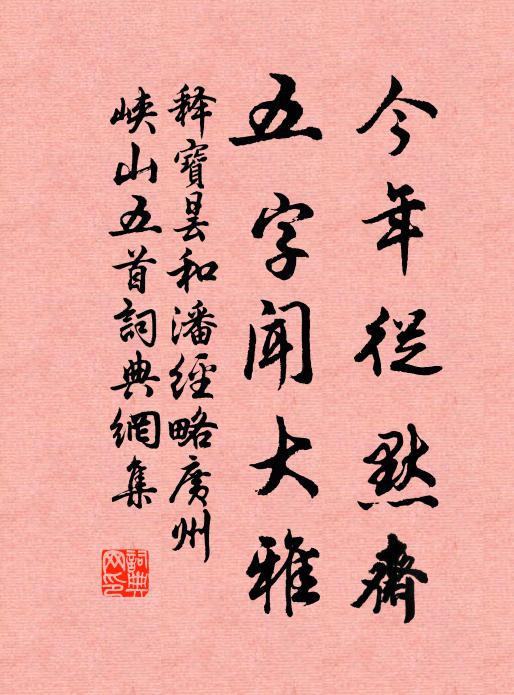 今年從默齋
五字聞大雅
释寶曇和潘經略廣州
峽山五首詞典網集
詞典网印